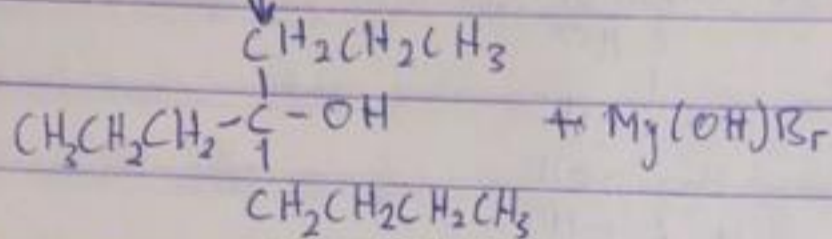 CH2CH2CH3
CH3CH2CH2-C-OH + Mg(OH)Br
CH2CH2CH2CH3